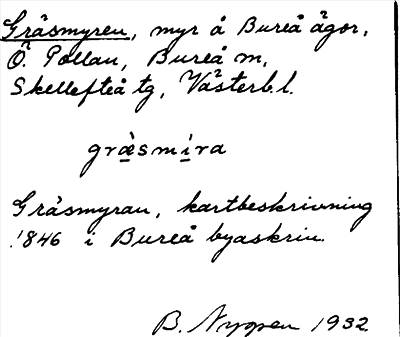 Gräsmyren, myr å Bureå ägor,
Ö. Pollan, Bureå m,
Skellefteå tg, Västerb.l.
græ̀smìra
Gräsmyran, kartbeskrivning
1846 i Bureå byaskrin.
B. Nygren 1932